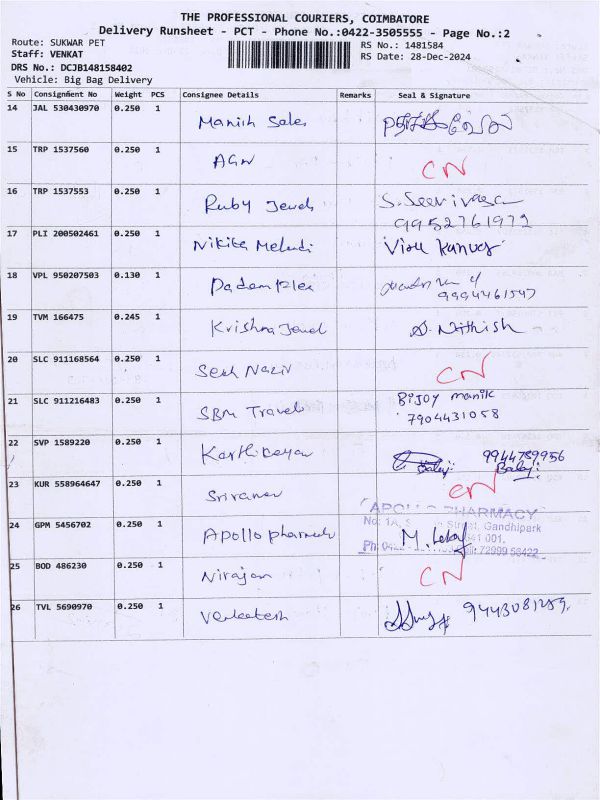 THE PROFESSIONAL COURIERS, COIMBATORE
Delivery Runsheet - PCT - Phone No.:0422-3505555 - Page No.:2
Route: SUKWAR PET
Staff: VENKAT
DRS No.: DCJB148158402
Vehicle: Big Bag Delivery
RS No.: 1481584
RS Date: 28-Dec-2024
S No Consignment No Weight PCS Consignee Details Remarks Seal & Signature
14 JAL 530430970 0.250 1 Manish Sales
15 TRP 1537560 0.250 1 AGN CN
16 TRP 1537553 0.250 1 Ruby Jewels S. Seerivasa
9952761972
17 PLI 200502461 0.250 1 Nikita Viru Kanwar
18 VPL 950207503 0.130 1
9994461547
19 TVM 166475 0.245 1 Krishna Jewel A. Nithish
20 SLC 911168564 0.250 1 Sekh Nazir CN
21 SLC 911216483 0.250 1 SBM Travels Bijoy manik
7904431058
22 SVP 1589220 0.250 1 Karthikeyan 9944789956
Balaji Balaji
23 KUR 558964647 0.250 1 CN
APOLLO PHARMACY
24 GPM 5456702 0.250 1 Apollo pharmacy No: 1A, Street, Gandhipark
641 001.
Ph: 0422 72999 56422
25 BOD 486230 0.250 1 Nirajan CN
26 TVL 5690970 0.250 1 Venkatesh 9443081259.